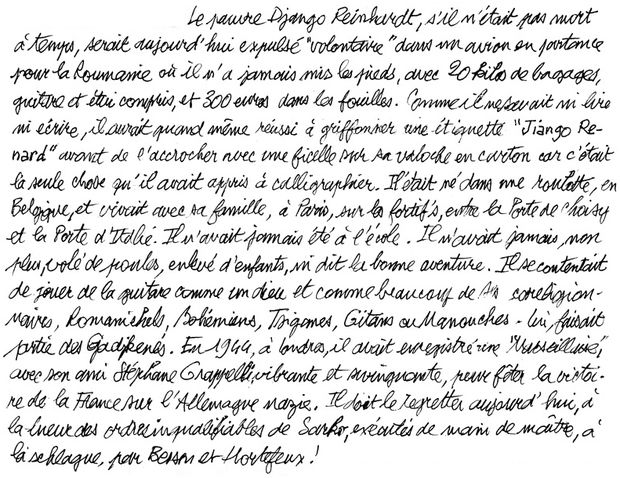 Le pauvre Django Reinhardt, s'il n'était pas mort
à temps, serait aujourd'hui expulsé "volontaire" dans un avion en partance
pour la Roumanie où il n'a jamais mis les pieds, avec 20 kilos de bagages,
guitare et étui compris, et 300 euros dans les fouilles. Comme il ne savait ni lire
ni écrire, il aurait quand même réussi à griffonner une étiquette "Jiango Re-
nard" avant de l'accrocher avec une ficelle sur sa valoche en carton car c'était
la seule chose qu'il avait appris à calligraphier. Il était né dans une roulotte, en
Belgique, et vivait avec sa famille, à Paris, sur les fortif's, entre la Porte de Choisy
et la Porte d'Italie. Il n'avait jamais été à l'école. Il n'avait jamais, non
plus, volé de poules, enlevé d'enfants, ni dit la bonne aventure. Il se contentait
de jouer de la guitare comme un dieu et comme beaucoup de ses coreligion-
naires, Romanichels, Bohémiens, Tsiganes, Gitans ou Manouches. Lui, faisait
partie des Gadjkenés. En 1944, à Londres, il avait enregistré une "Marseillaise",
avec son ami Stéphane Grappelli, vibrante et swinguante, pour fêter la victoi-
re de la France sur l'Allemagne nazie. Il doit le regretter aujourd'hui, à
la lueur des ordres inqualifiables de Sarko, exécutés de main de maître, à
la schlague, par Besson et Hortefeux !